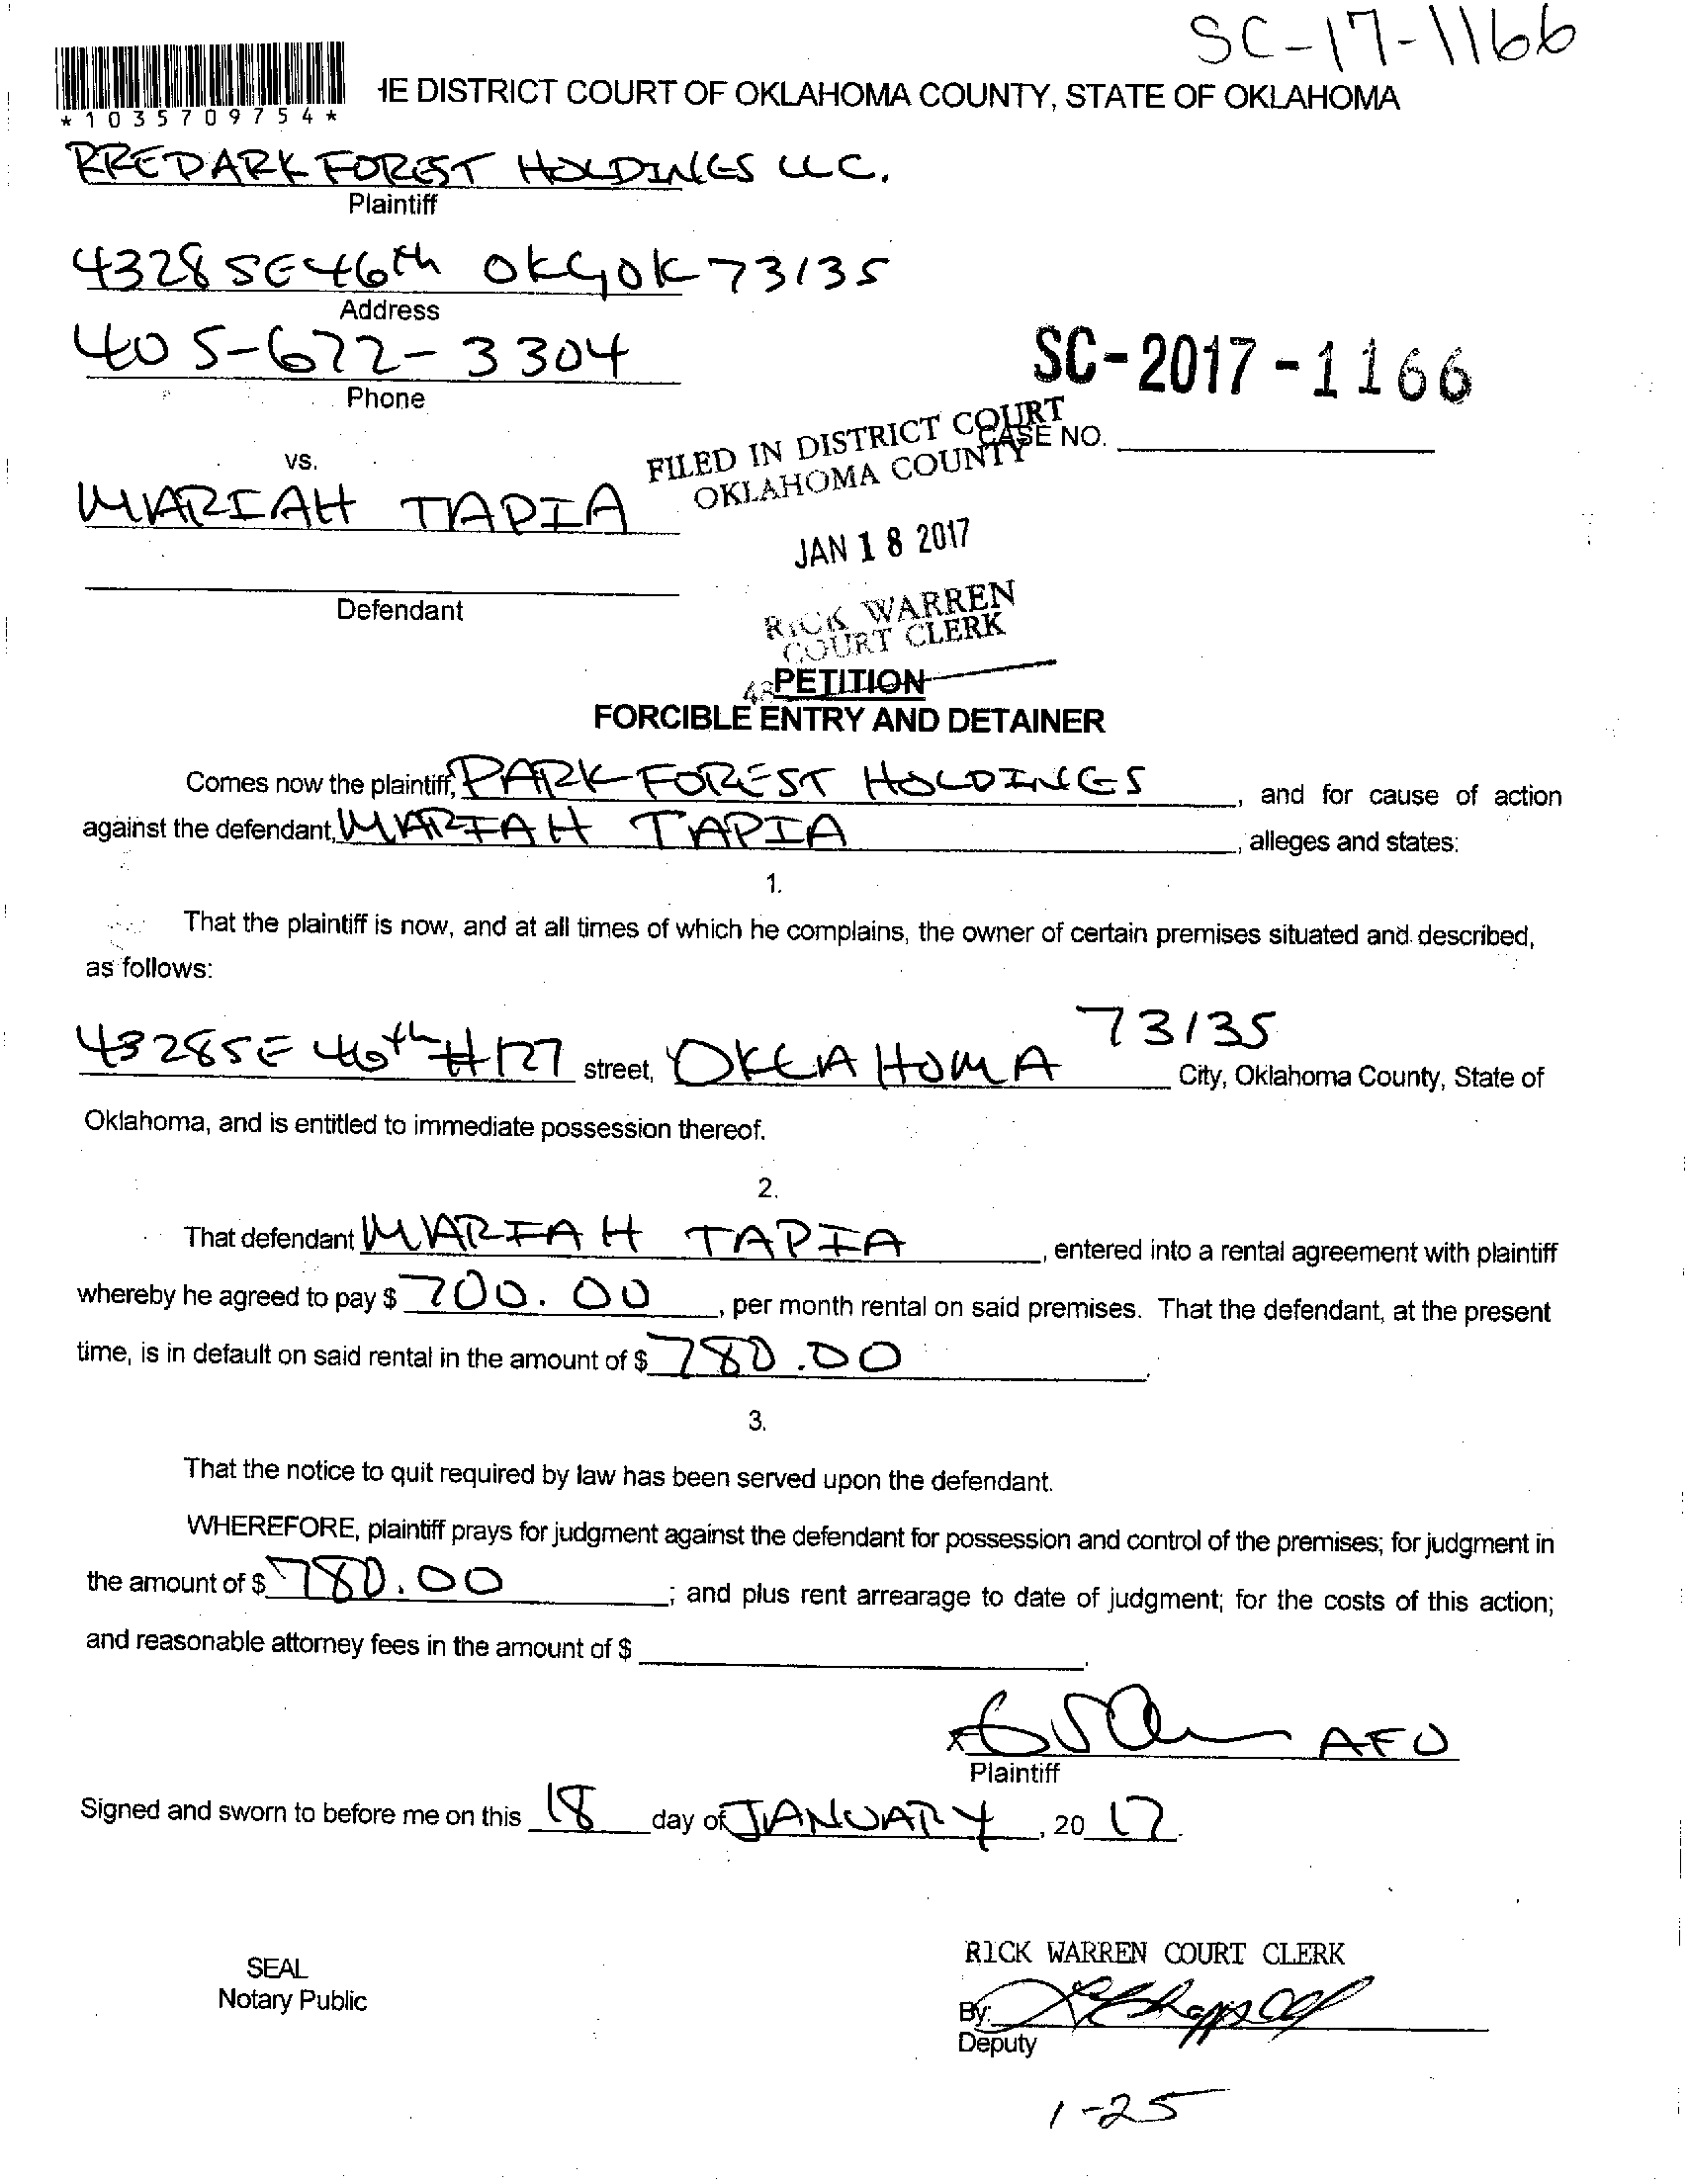 SC-17-1166
HE DISTRICT COURT OF OKLAHOMA COUNTY, STATE OF OKLAHOMA
*1035709754*
RRE PARK FOREST HOLDINGS LLC.
Plaintiff
4328 SE 46th OKC, OK 73135
Address
405-672-3304
Phone
SC-2017-1166
CASE NO.
FILED IN DISTRICT COURT
OKLAHOMA COUNTY
vs.
MARIAH TAPIA
JAN 18 2017
Defendant
RICK WARREN
COURT CLERK
PETITION
FORCIBLE ENTRY AND DETAINER
Comes now the plaintiff, PARK FOREST HOLDINGS, and for cause of action
against the defendant, MARIAH TAPIA, alleges and states:
1.
That the plaintiff is now, and at all times of which he complains, the owner of certain premises situated and described,
as follows:
4328 SE 46th #127 street, OKLAHOMA 73135 City, Oklahoma County, State of
Oklahoma, and is entitled to immediate possession thereof.
2.
That defendant MARIAH TAPIA, entered into a rental agreement with plaintiff
whereby he agreed to pay $ 700.00, per month rental on said premises. That the defendant, at the present
time, is in default on said rental in the amount of $ 780.00.
3.
That the notice to quit required by law has been served upon the defendant.
WHEREFORE, plaintiff prays for judgment against the defendant for possession and control of the premises; for judgment in
the amount of $ 780.00; and plus rent arrearage to date of judgment; for the costs of this action;
and reasonable attorney fees in the amount of $ .
AFO
Plaintiff
Signed and sworn to before me on this 18 day of JANUARY, 2017.
RICK WARREN COURT CLERK
SEAL
Notary Public
By:
Deputy
1-25